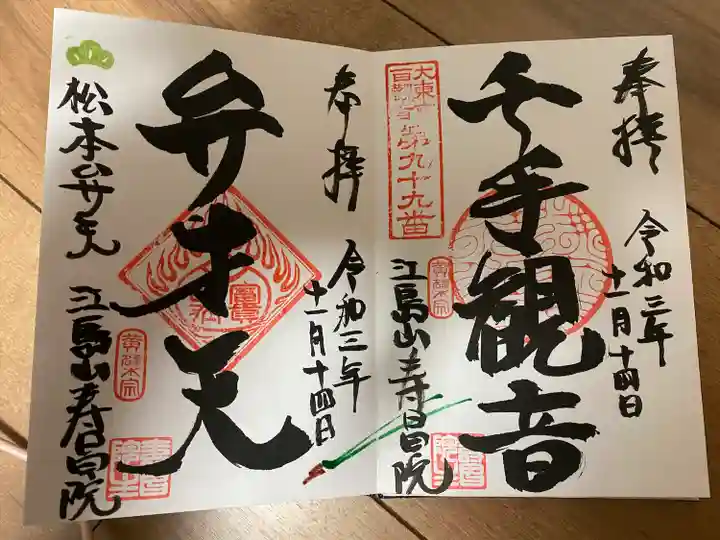 奉拝
令和三年
十一月十四日
千手観音
第九十九番
黄檗宗
江島山寿昌院
奉拝
令和三年
十一月十四日
弁才天
松本弁天
黄檗宗
江島山寿昌院